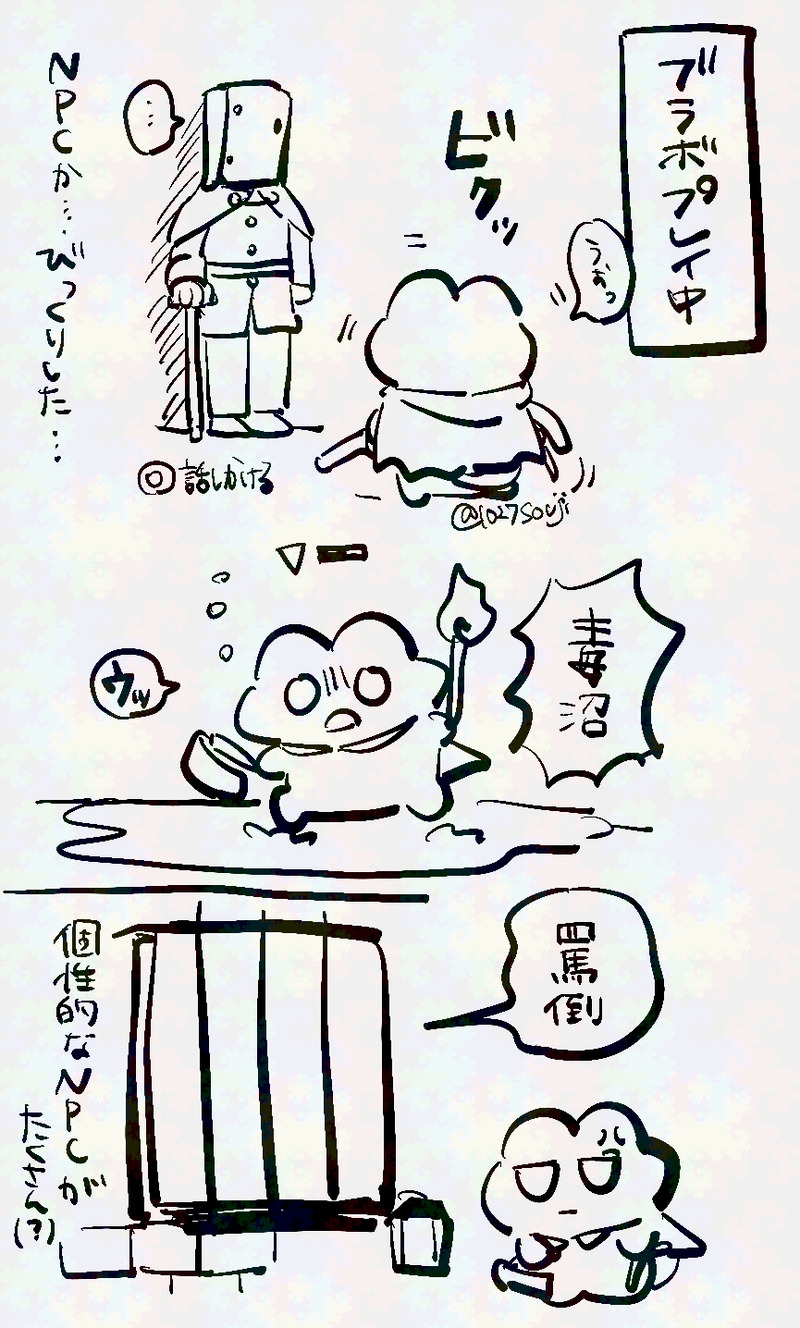 ブラボプレイ中
うおっ
ビクッ
…
NPCか…びっくりした…
◎話しかける
@1027souji
毒沼
ウッ
罵倒
個性的なNPCが
たくさん(?)